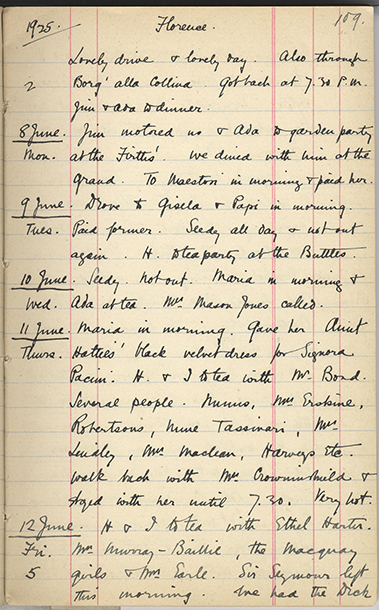 1925. Florence. 109.
Lovely drive & lovely day. Also through
2 Borg' alla Collina. Got back at 7.30 P.M.
Jim & Ada to dinner.
8 June. Jim motored us & Ada to garden party
Mon. at the Firths'. We dined with him at the
Grand. To Maestori in morning & paid her.
9 June. Drove to Gisela & Papi in morning.
Tues. Paid former. Seedy all day & not out
again. H. to tea party at the Buttles.
10 June. Seedy. Not out. Maria in morning &
Wed. Ada at tea. Mrs Mason Jones called.
11 June. Maria in morning. Gave her Aunt
Thurs. Hatties' black velvet dress for Signora
Pacini. H. & I to tea with Mr. Bond.
Several people. Mrs Erskine,
Robertsons, Mme Tassinari, Mrs
Lindley, Mrs Maclean, Harveys etc.
Walk back with Mrs Crowninshield &
stayed with her until 7.30. Very hot.
12 June. H & I to tea with Ethel Harter.
Fri. Mrs Murray-Baillie, the Macquay
5 girls & Mrs Earle. Sir Seymour left
this morning. We had the Dick